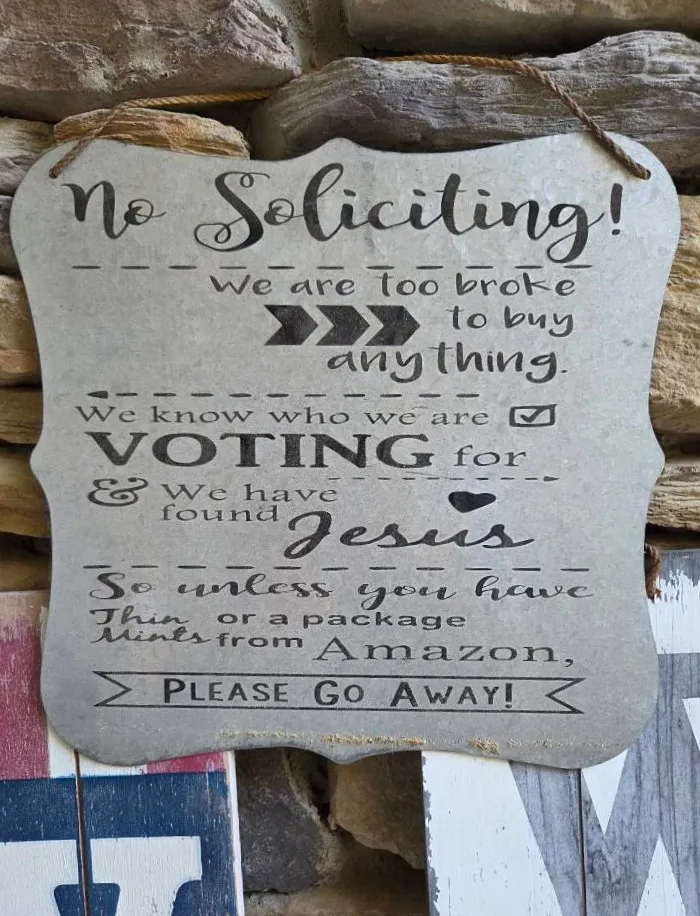 No Soliciting!
We are too broke
to buy
anything.
We know who we are
VOTING for
& We have
found Jesus
So unless you have
Thin or a package
Mints from Amazon,
PLEASE GO AWAY!